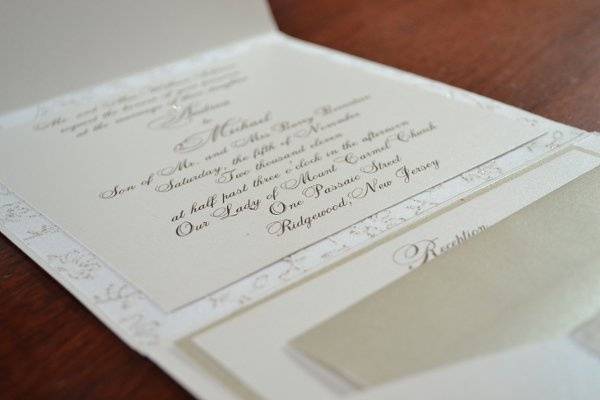 Mr. and Mrs.
request the honor of
at the marriage of
Andrea
&
Michael
Son of Mr. and Mrs Barry
Saturday, the fifth of November
Two thousand eleven
at half past three o'clock in the afternoon
Our Lady of Mount Carmel Church
One Passaic Street
Ridgewood, New Jersey
Reception